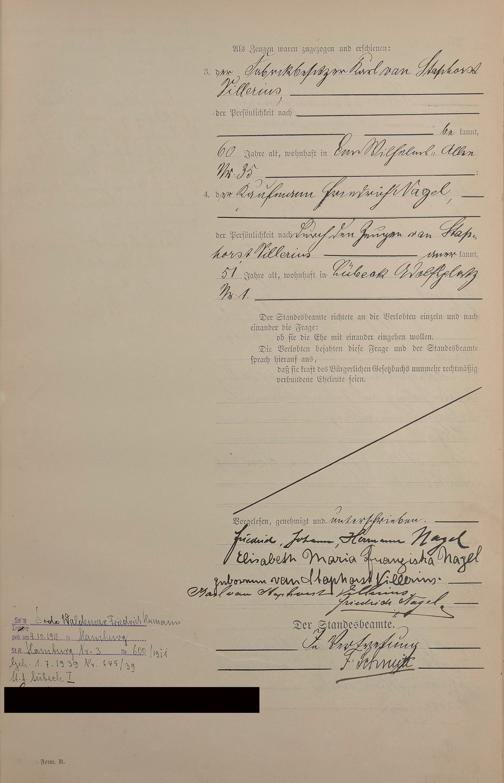 Als Zeugen waren zugezogen und erschienen:
3. der Fabrikbesitzer Karl van Staphorst
Villerius,
der Persönlichkeit nach
be kannt,
60 Jahre alt, wohnhaft in Wilhelms-Allee
Nr. 35 ;
4. der Kaufmann Friedrich Nagel,
der Persönlichkeit nach durch den Zeugen van Stap-
horst Villerius aner kannt,
51 Jahre alt, wohnhaft in Lübeck Adolfplatz
Nr. 1.
Der Standesbeamte richtete an die Verlobten einzeln und nach
einander die Frage:
ob sie die Ehe mit einander eingehen wollen.
Die Verlobten bejahten diese Frage und der Standesbeamte
sprach hierauf aus,
daß sie kraft des Bürgerlichen Gesetzbuchs nunmehr rechtmäßig
verbundene Eheleute seien.
Vorgelesen, genehmigt und unterschrieben.
Friedrich, Johann, Hermann Nagel
Elisabeth Maria Franziska Nagel
geborenen van Staphorst Villerius.
Karl van Staphorst Villerius
Friedrich Nagel.
Der Standesbeamte.
In Vertretung
Waldemar Friedrich Hermann
Hamburg
Hamburg Nr. 3
1.7.1939 Nr. 645/39
Lübeck I
Form. B.